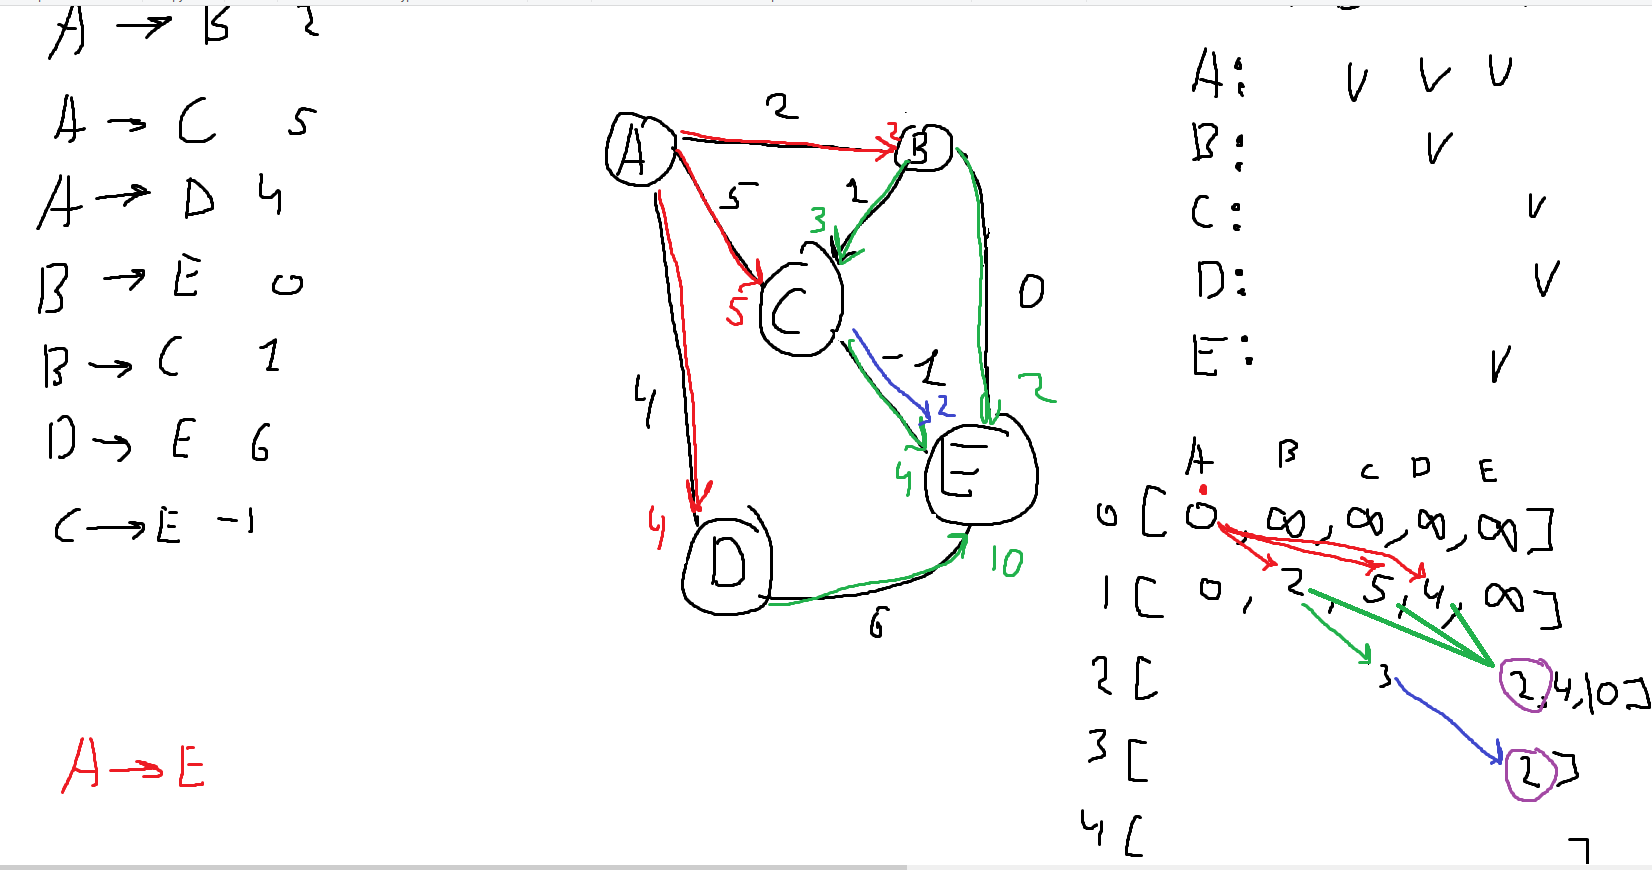 A → B 2
A → C 5
A → D 4
B → E 0
B → C 1
D → E 6
C → E -1
A → E
2
A
2
B
5
1
3
C
5
0
-1
2
2
4
E
4
4
D
10
6
A: V V V
B: V
C: V
D: V
E: V
A B C D E
0 [ 0, ∞, ∞, ∞, ∞ ]
1 [ 0, 2, 5, 4, ∞ ]
2 [ 3 2, 4, 10 ]
3 [ 2 ]
4 [ ]